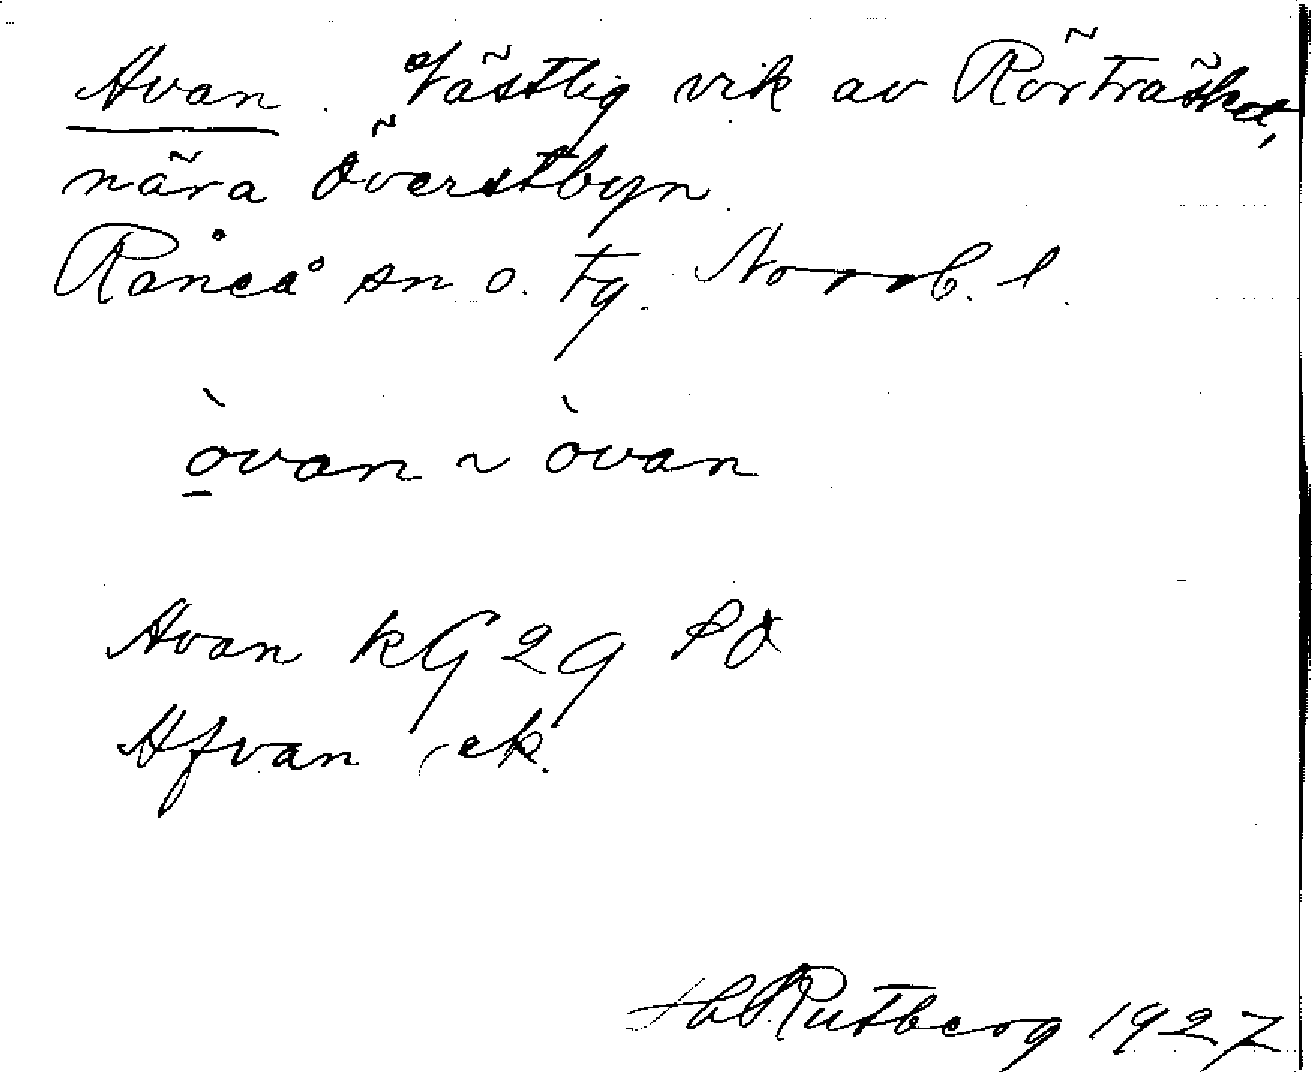 Avan. Västlig vik av Rörträsket,
nära Överstbyn
Råneå sn o. tg. Norrb. l.
ò̲van ~ òvan
Avan kG 29
Afvan ek.
Rutberg 1927